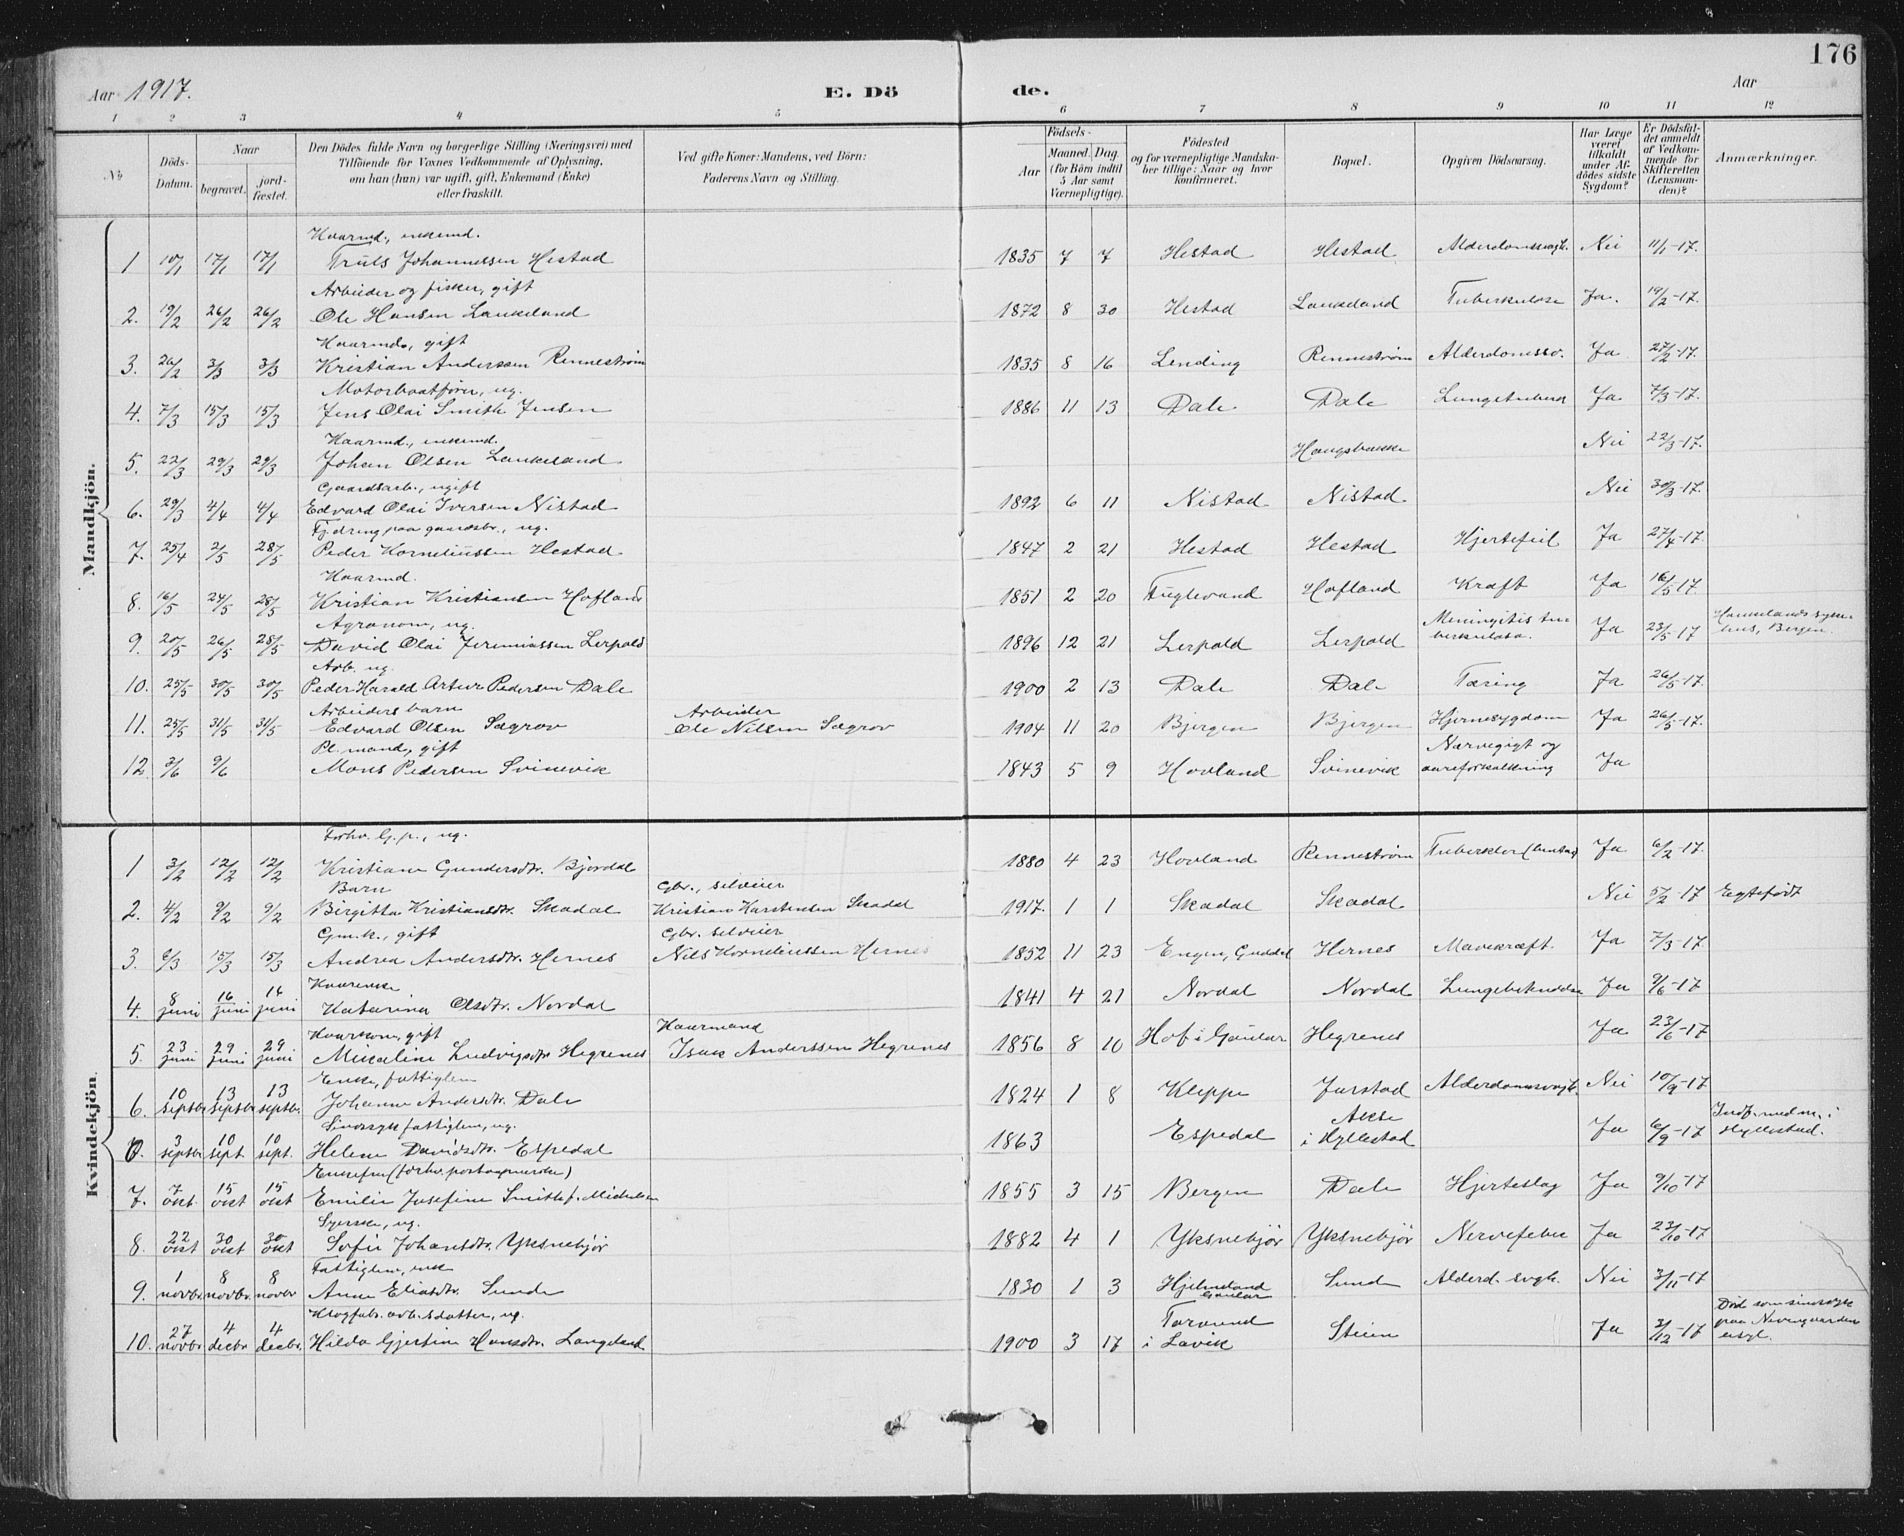 176
Aar 1917.
E. Dö de.
Aar
1 2 3 4 5 6 7 8 9 10 11 12
No
Döds-Datum.
Naar
begravet.
jordfæstet.
Den Dödes fulde Navn og borgerlige Stilling (Næringsvei) med
Tilföiende for Voxnes Vedkommende af Oplysning,
om han (hun) var ugift, gift, Enkemand (Enke)
eller fraskilt.
Ved gifte Koner: Mandens, ved Börn:
Faderens Navn og Stilling.
Födsels-
Aar
Maaned. Dag.
(for Börn indtil
5 Aar samt
Værnepligtige).
Födested
og for værnepligtige Mandska-
ber tillige: Naar og hvor
konfirmeret.
Bopæl.
Opgiven Dödsaarsag.
Har Læge
været
tilkaldt
under Af-
dödes sidste
Sygdom?
Er Dödsfal-
det anmeldt
af Vedkom-
mende for
Skifteretten
(Lensman-
den)?
Anmærkninger.
Mandkjön.
Kaarmd., enkemd.
1 10/1 17/1 17/1 Truls Johannessen Hestad 1835 7 7 Hestad Hestad Alderdomssvagh. Nei 11/1-17.
Arbeider og fisker, gift
2. 19/2 26/2 26/2 Ole Hansen Laukeland 1872 8 30 Hestad Laukeland Tuberkulose Ja. 19/2-17.
Kaarmd., gift
3. 26/2 3/3 3/3 Kristian Anderssen Renneström 1835 8 16 Lending Renneström Alderdomssv. Ja 27/2-17.
Motorbaatförer, ug.
4. 7/3 15/3 15/3 Jens Olai Smith Jensen 1886 11 13 Dale Dale Lungetuberk Ja 7/3-17.
Kaarmd., enkemd.
5. 22/3 29/3 29/3 Johan Olsen Laukeland Haugsbakke Nei 22/3-17.
Gaardsarb., ugift
6. 29/3 4/4 4/4 Edvard Olai Iversen Nistad 1892 6 11 Nistad Nistad Nei 30/3-17.
paa gaardsbr., ug.
7. 25/4 2/5 28/5 Peder Korneliussen Hestad 1847 2 21 Hestad Hestad Hjertefeil Ja 27/4-17.
Kaarmd.
8. 16/5 24/5 28/5 Kristian Kristiansen Hofland 1851 2 20 Fuglevand Hofland Kræft Ja 16/5-17.
Agronom, ug.
9. 20/5 26/5 28/5 David Olai Jeremiassen Lerpold 1896 12 21 Lerpold Lerpold Meningitis tuberkulosa. Ja 23/5-17 Haukelands sykehus, Bergen.
Arb. ug.
10. 25/5 30/5 30/5 Peder Harald Artur Pedersen Dale 1900 2 13 Dale Dale Tæring Ja 26/5-17.
Arbeiders barn Arbeider
11. 25/5 31/5 31/5 Edvard Olsen Sægrov Ole Nilsen Sægrov 1904 11 20 Bjergen Bjergen Hjernesygdom Ja 26/5-17.
Pl. mand, gift
12 3/6 9/6 Mons Pedersen Svinevik 1843 5 9 Hovland Svinevik Nærvegigt og aareforkalkning Ja
Kvindekjön.
Forhv. G.p., ug.
1 3/2 12/2 12/2 Kristiane Gundersdtr. Bjordal 1880 4 23 Hovland Renneström Ja 6/2-17.
Barn Gbr., selveier
2. 4/2 9/2 9/2 Birgitta Kristiansdtr. Skadal Kristian Karstensen Skadal 1917. 1 1 Skadal Skadal Nei 5/2-17 Egtefödt
Gmk., gift Gbr. selveier
3. 6/3 15/3 15/3 Andrea Andersdtr. Hernes Nils Korneliussen Hernes 1852 11 23 Engen, Guddal Hernes Mavekræft. Ja 7/3-17
Kaarenke
4. 8 juni 16 juni 16 juni Katarina Olsdtr. Nordal 1841 4 21 Nordal Nordal Lungebetændelse Ja 9/6-17
Kaarkone, gift Kaarmand
5. 23 juni 29 juni 29 juni Mikaline Ludvigsdtr. Hegrenes Isak Anderssen Hegrenes 1856 8 10 Hof i Gaular Hegrenes Ja 23/6-17
Enke, fattiglem
6. 10 septbr 13 septbr 13 septbr. Johanne Andersdtr. Dale 1824 1 8 Kleppe Jarstad Alderdomssvagh. Nei 10/9-17
Sindssyk fattiglem, ug.
0. 3 septbr 10 sept. 10 sept. Helene Davidsdtr. Espedal 1863 Espedal Akse i Hyllestad Ja 6/9-17 Indf. med m. i Hyllestad.
Enkefru (forhv. postaapnerske)
7. 7 okt. 15 okt 15 okt Emilie Josefine Smith f. Michelsen 1855 3 15 Bergen Dale Hjerteslag Ja 9/10-17
Syerske, ug.
8. 22 okt 30 okt 30 okt Sofie Johansdtr. Yksnebjör 1882 4 1 Yksnebjör Yksnebjör Nervefeber Ja 23/10-17
Fattiglem, enke
9. 1 novbr. 8 novbr. 8 novbr Anne Eliasdtr. Sunde 1830 1 3 Hjelmeland Gaular Sund Alderd. svgh. Nei 3/11-17
arb.s datter, ug.
10. 27 novbr. 4 decbr. 4 decbr. Hilda Gjertine Hansdtr. Langeland 1900 3 17 i Lavik Steien Ja 3/12-17 Död som sindssyk paa Neevengaarden asyl.